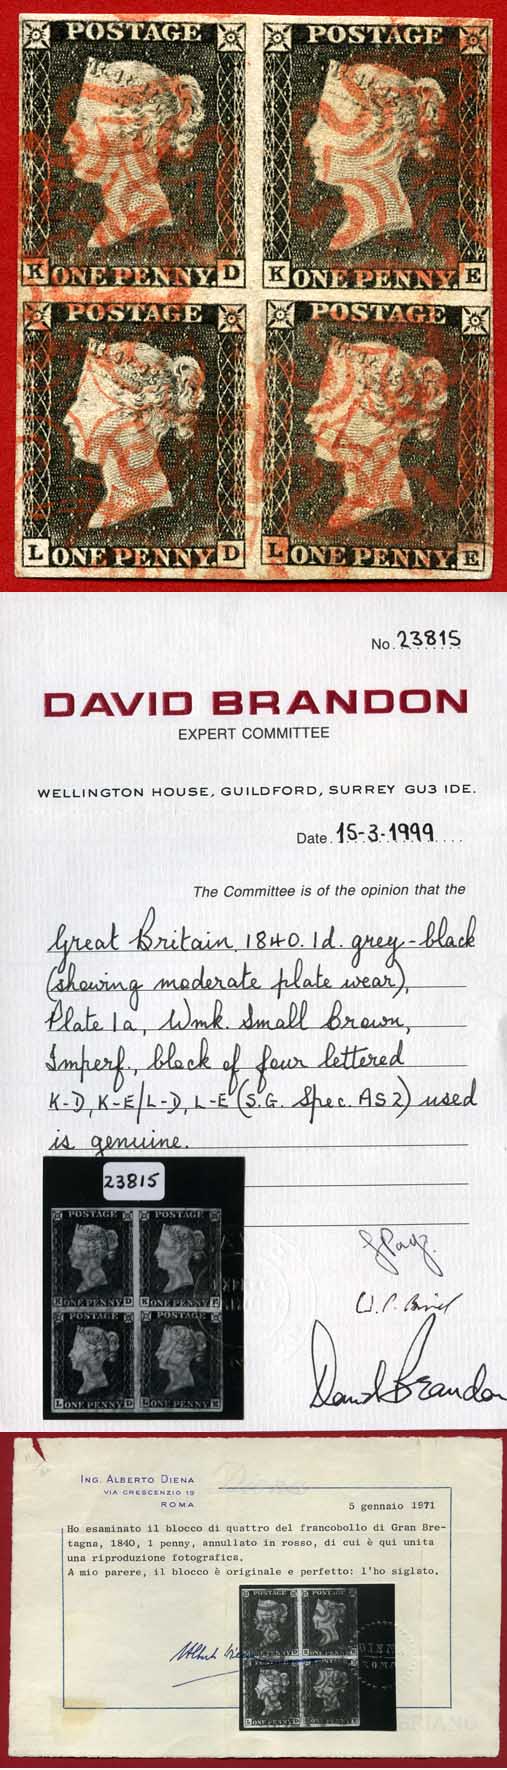 POSTAGE POSTAGE
K ONE PENNY. D K ONE PENNY. E
POSTAGE POSTAGE
L ONE PENNY. D L ONE PENNY. E
No. 23815
DAVID BRANDON
EXPERT COMMITTEE
WELLINGTON HOUSE, GUILDFORD, SURREY GU3 1DE.
Date. 15-3-1999
The Committee is of the opinion that the
Great Britain 1840. 1d. grey-black
(showing moderate plate wear),
Plate 1a, Wmk. Small Crown,
Imperf., block of four lettered
K-D, K-E/L-D, L-E (S.G. Spec. AS2) used
is genuine.
23815
POSTAGE POSTAGE
K ONE PENNY D K ONE PENNY E
POSTAGE POSTAGE
L ONE PENNY D L ONE PENNY E
David Brandon
ING. ALBERTO DIENA
VIA CRESCENZIO 19
ROMA
5 gennaio 1971
Ho esaminato il blocco di quattro del francobollo di Gran Bre-
tagna, 1840, 1 penny, annullato in rosso, di cui è qui unita
una riproduzione fotografica.
A mio parere, il blocco è originale e perfetto: l'ho siglato.
POSTAGE POSTAGE
ONE PENNY ONE PENNY
POSTAGE POSTAGE
L ONE PENNY D L ONE PENNY E
DIENA
ROMA